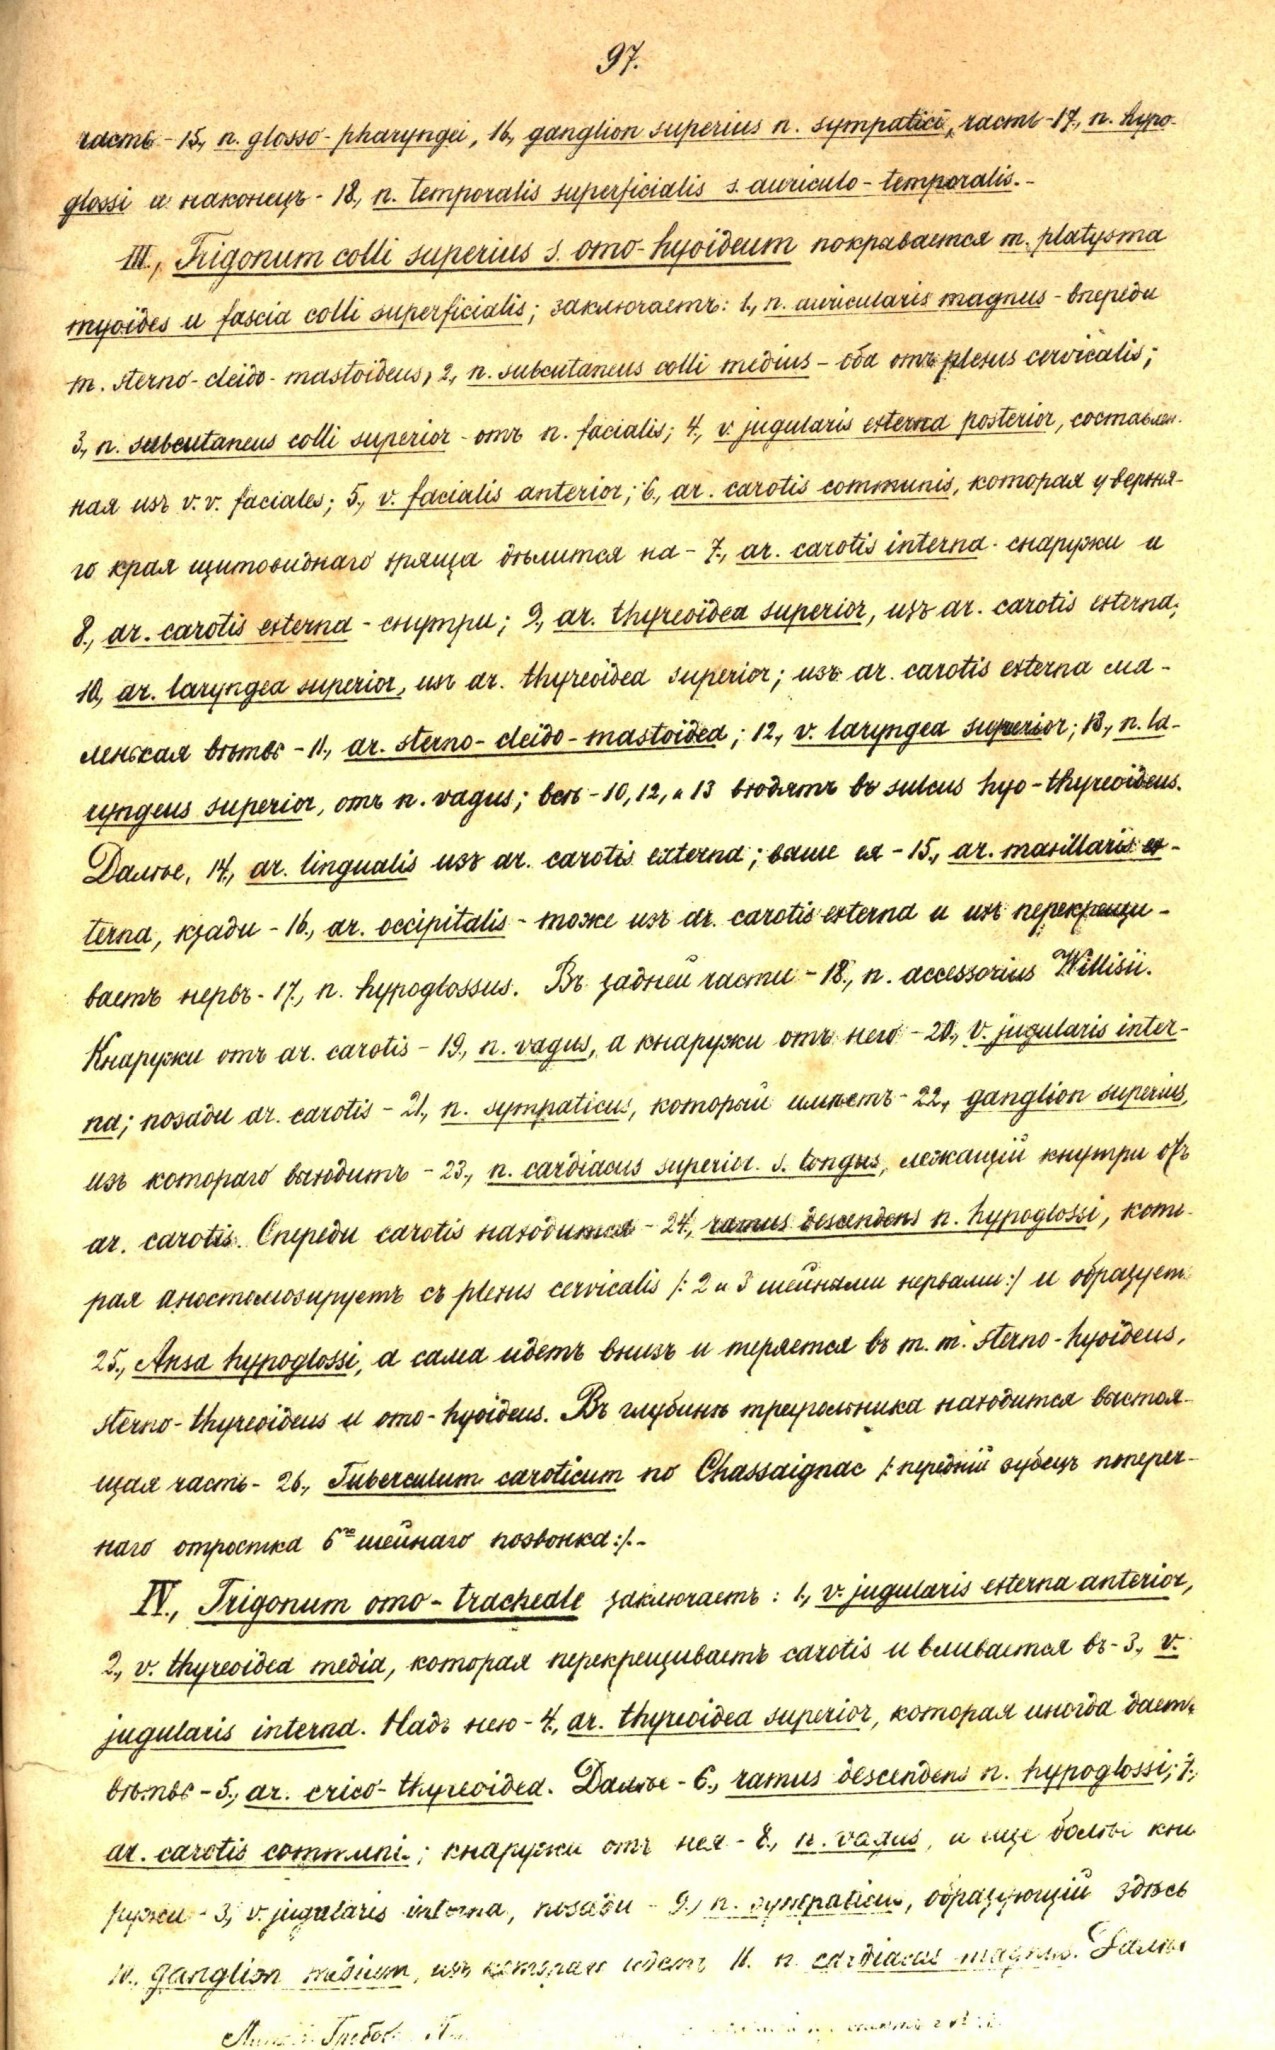 97.
часть - 15., n. glosso-pharyngei, 16., ganglion superius n. sympatici, часть - 17., n. hypo-
glossi и наконецъ - 18., n. temporalis superficialis s. auriculo-temporalis.-
III., Trigonum colli superius s. omo-hyoideum покрывается m. platysma
myoides и fascia colli superficialis; заключаетъ: 1., n. auricularis magnus - впереди
m. sterno-cleido-mastoideus, 2., n. subcutaneus colli medius - оба отъ plexus cervicalis;
3., n. subcutaneus colli superior - отъ n. facialis; 4., v. jugularis externa posterior, составлен-
ная изъ v.v. faciales; 5., v. facialis anterior; 6., ar. carotis communis, которая у верхня-
го края щитовиднаго хряща дѣлится на - 7., ar. carotis interna - снаружи и
8., ar. carotis externa - снутри; 9., ar. thyreoidea superior, изъ ar. carotis externa;
10., ar. laryngea superior, изъ ar. thyreoidea superior; изъ ar. carotis externa ма-
ленькая вѣтвь - 11., ar. sterno-cleido-mastoidea; 12., v. laryngea superior; 13., n. la-
ryngeus superior, отъ n. vagus; всѣ - 10, 12, и 13 входятъ въ sulcus hyo-thyreoideus.
Далѣе, 14., ar. lingualis изъ ar. carotis externa; выше ея - 15., ar. maxillaris ex-
terna, кзади - 16., ar. occipitalis - тоже изъ ar. carotis externa и ихъ перекрещи-
ваетъ нервъ - 17., n. hypoglossus. Въ задней части - 18., n. accessorius Willisii.
Кнаружи отъ ar. carotis - 19., n. vagus, а кнаружи отъ него - 20., v. jugularis inter-
na; позади ar. carotis - 21., n. sympaticus, который имѣетъ - 22., ganglion superius,
изъ котораго выходитъ - 23., n. cardiacus superior s. longus, лежащій кнутри отъ
ar. carotis. Спереди carotis находится - 24., ramus descendens n. hypoglossi, кото-
рая аностомозируетъ съ plexus cervicalis /: 2 и 3 шейными нервами :/ и образуетъ
25., Ansa hypoglossi, а сама идетъ внизъ и теряется въ m. m. sterno-hyoideus,
sterno-thyreoideus и omo-hyoideus. Въ глубинѣ треугольника находится выстоя-
щая часть - 26., Tuberculum caroticum по Chassaignac /: передній зубецъ попереч-
наго отростка 6го шейнаго позвонка :/.-
IV., Trigonum omo-tracheale заключаетъ: 1., v. jugularis externa anterior,
2., v. thyreoidea media, которая перекрещиваетъ carotis и вливается въ - 3., v.
jugularis interna. Надъ нею - 4., ar. thyreoidea superior, которая иногда даетъ
вѣтвь - 5., ar. crico-thyreoidea. Далѣе - 6., ramus descendens n. hypoglossi; 7.,
ar. carotis communis; кнаружи отъ нея - 8., n. vagus, и еще болѣе кна
ружи - 3., v. jugularis interna, позади - 9., n. sympaticus, образующій здѣсь
10., ganglion medium, изъ котораго идетъ 11. n. cardiacus magnus. Далѣе